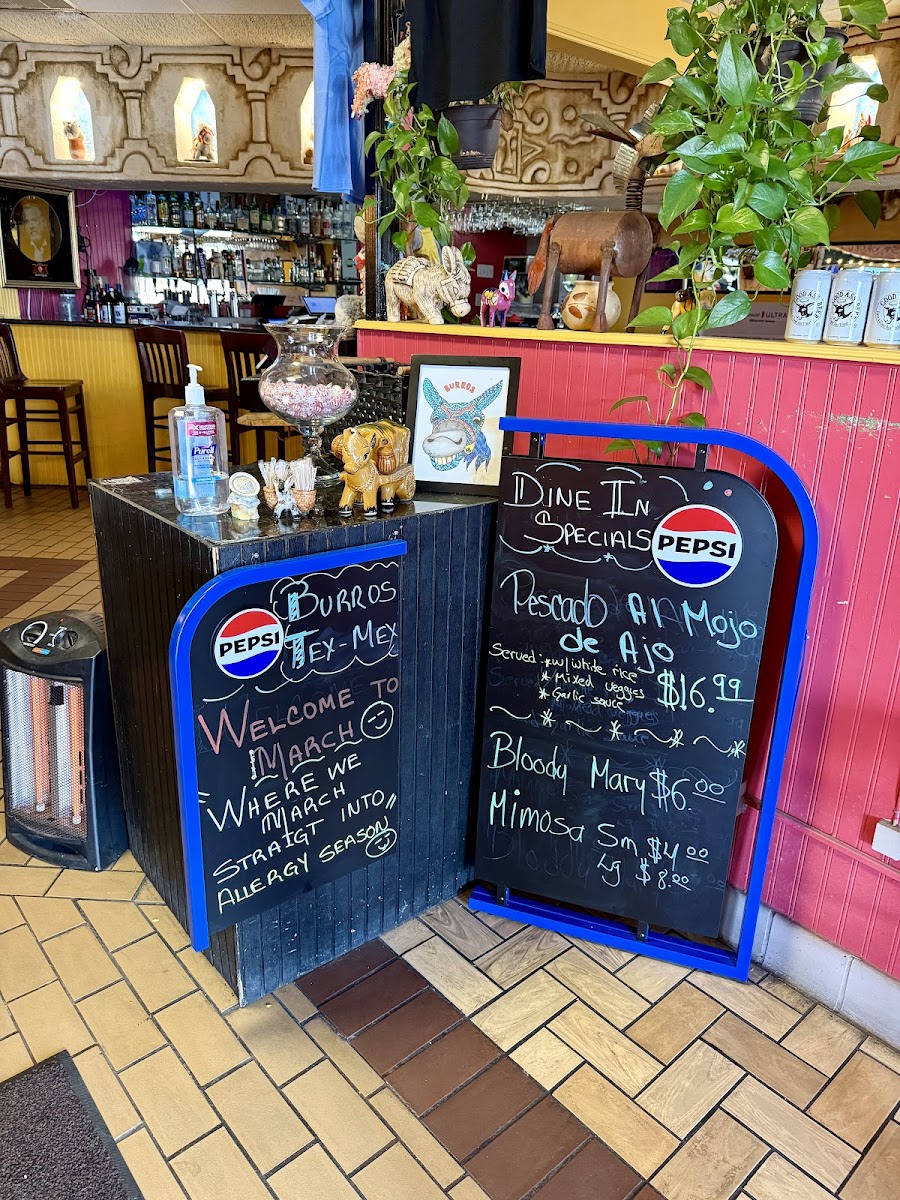 BURROS
TEX-MEX
PEPSI
WELCOME TO
MARCH
WHERE WE
MARCH
STRAIGT INTO
ALLERGY SEASON
DINE IN
SPECIALS
PEPSI
Pescado Al Mojo
de Ajo
Served: * w/ white rice
* Mixed veggies
* Garlic sauce
$16.99
Bloody Mary $6.00
Mimosa Sm $4.00
Lg $8.00
BURROS
Purell
ULTRA